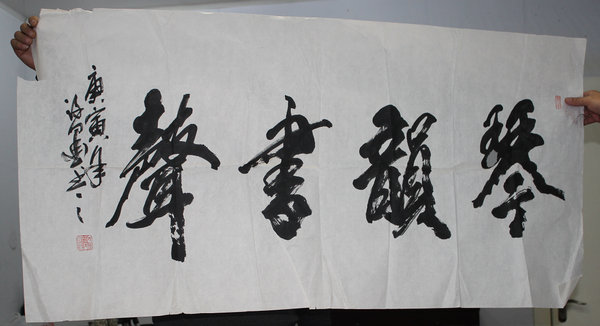 琴韻書聲
庚寅年